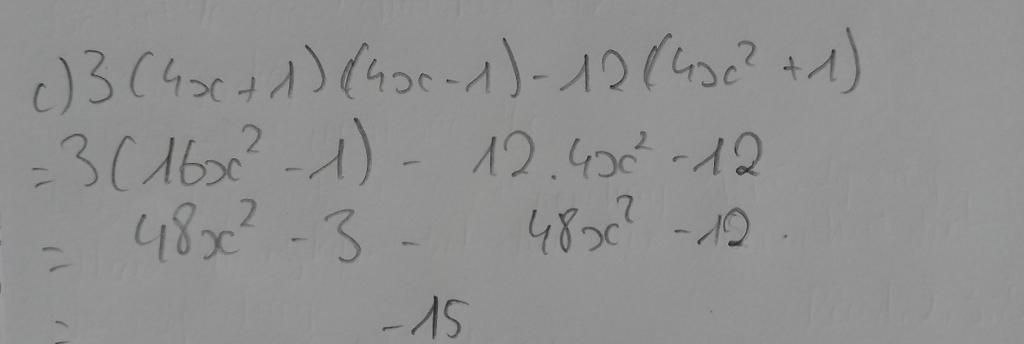 c) 3(4x+1)(4x-1)-12(4x² +1)
= 3(16x² -1) - 12.4x² -12
= 48x² -3 - 48x² -12.
= -15